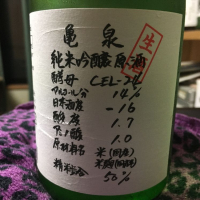 亀泉
生
純米吟醸原酒
酵母 CEL-24
アルコール分 14%
日本酒度 -16
酸度 1.7
アミノ酸 1.0
原材料名 米(国産)
米麹(国産米)
精米歩合 50%